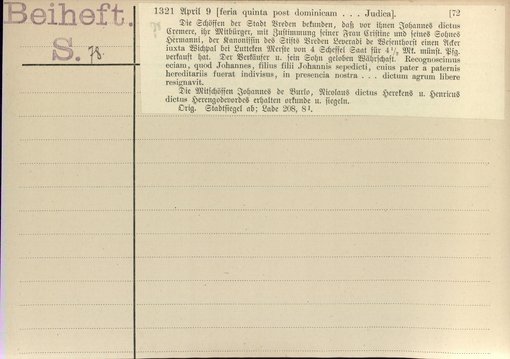 Beiheft.
S. 78.
1321 April 9 [feria quinta post dominicam . . . Judica]. [72
Die Schöffen der Stadt Vreden bekunden, daß vor ihnen Johannes dictus
Cremere, ihr Mitbürger, mit Zustimmung seiner Frau Cristine und seines Sohnes
Hermanni, der Kanonissin des Stifts Vreden Leveradi de Besenthorst einen Acker
iuxta Wichpal bei Luttiken Merste von 4 Scheffel Saat für 4 1/2 Mk. münst. Pfg.
verkauft hat. Der Verkäufer u. sein Sohn geloben Währschaft. Recognoscimus
eciam, quod Johannes, filius filii Johannis sepedicti, cuius pater a paternis
hereditariis fuerat indivisus, in presencia nostra . . . dictum agrum libere
resignavit.
Die Mitschöffen Johannes de Burlo, Nicolaus dictus Herekens u. Henricus
dictus Herengodevordes erhalten Urkunde u. siegeln.
Orig. Stadtsiegel ab; Lade 208, 8